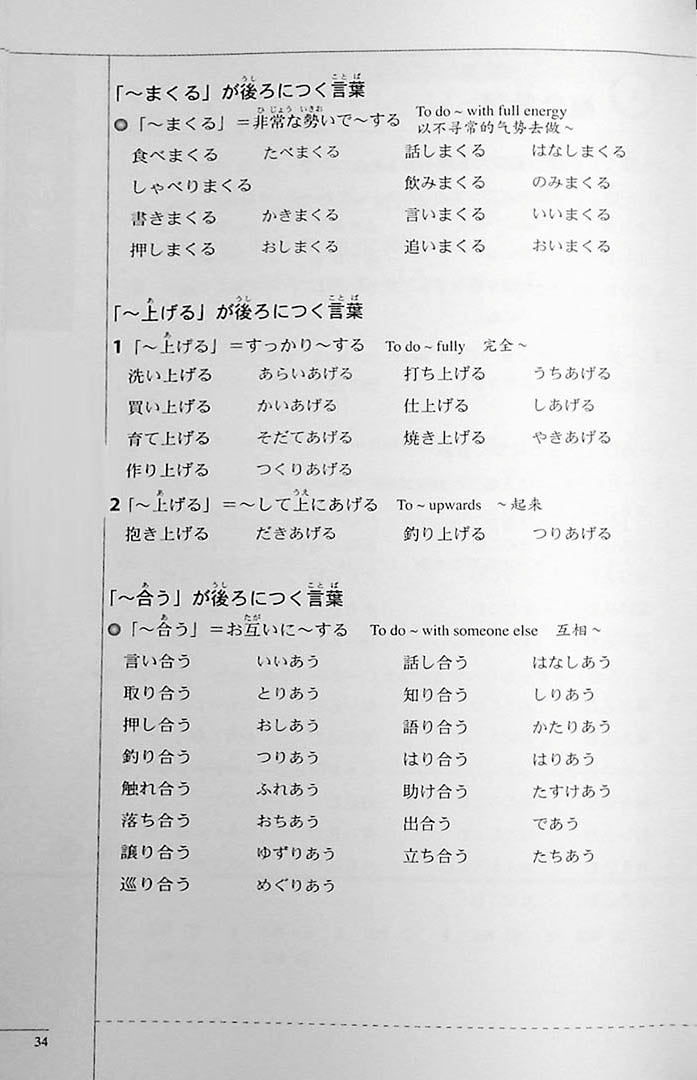 「～まくる」が後ろにつく言葉
「～まくる」＝非常な勢いで～する　To do ~ with full energy
以不寻常的气势去做～
食べまくる　たべまくる　話しまくる　はなしまくる
しゃべりまくる　飲みまくる　のみまくる
書きまくる　かきまくる　言いまくる　いいまくる
押しまくる　おしまくる　追いまくる　おいまくる
「～上げる」が後ろにつく言葉
1「～上げる」＝すっかり～する　To do ~ fully　完全～
洗い上げる　あらいあげる　打ち上げる　うちあげる
買い上げる　かいあげる　仕上げる　しあげる
育て上げる　そだてあげる　焼き上げる　やきあげる
作り上げる　つくりあげる
2「～上げる」＝～して上にあげる　To ~ upwards　～起来
抱き上げる　だきあげる　釣り上げる　つりあげる
「～合う」が後ろにつく言葉
「～合う」＝お互いに～する　To do ~ with someone else　互相～
言い合う　いいあう　話し合う　はなしあう
取り合う　とりあう　知り合う　しりあう
押し合う　おしあう　語り合う　かたりあう
釣り合う　つりあう　はり合う　はりあう
触れ合う　ふれあう　助け合う　たすけあう
落ち合う　おちあう　出合う　であう
譲り合う　ゆずりあう　立ち合う　たちあう
巡り合う　めぐりあう
34